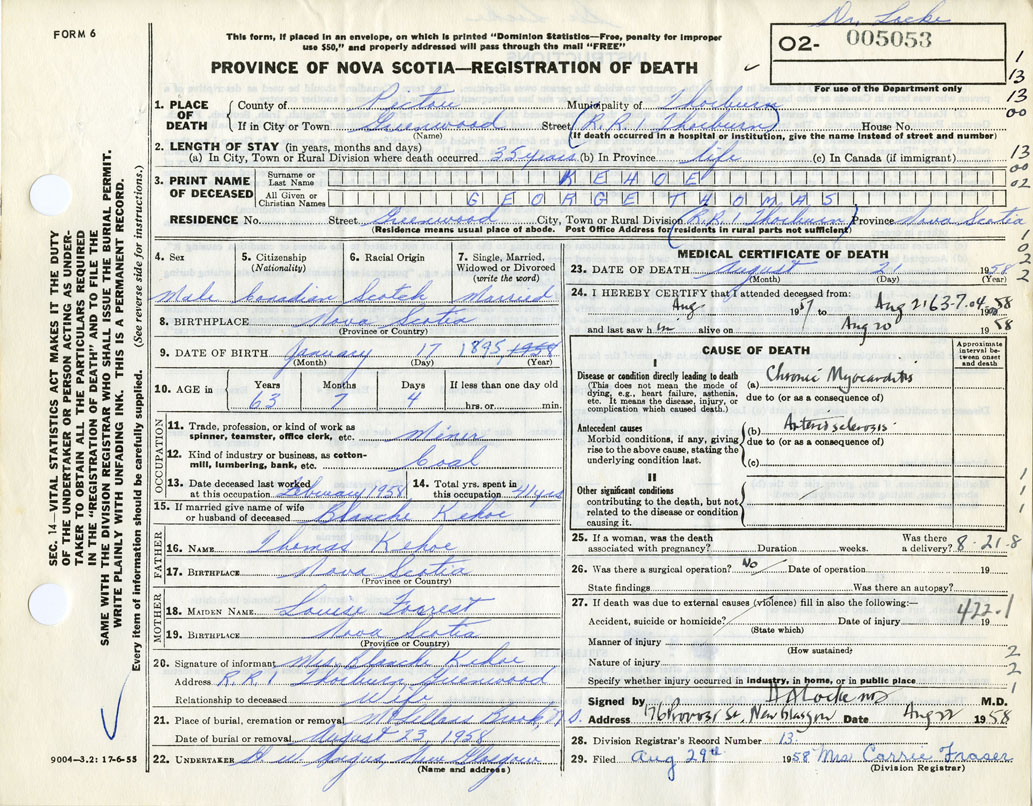 Dr. Locke
FORM 6
This form, if placed in an envelope, on which is printed "Dominion Statistics—Free, penalty for improper
use $50," and properly addressed will pass through the mail "FREE"
PROVINCE OF NOVA SCOTIA—REGISTRATION OF DEATH
O2- 005053
For use of the Department only
1
13
13
00
1. PLACE OF DEATH
County of Pictou Municipality of Thorburn
If in City or Town Greenwood Street (R.R. 1 Thorburn) House No.
(Name) (If death occurred in a hospital or institution, give the name instead of street and number)
2. LENGTH OF STAY (in years, months and days)
(a) In City, Town or Rural Division where death occurred 35 years (b) In Province life (c) In Canada (if immigrant)
13
00
02
3. PRINT NAME OF DECEASED
Surname or Last Name KEHOE
All Given or Christian Names GEORGE THOMAS
RESIDENCE No. Street Greenwood City, Town or Rural Division (R.R. 1 Thorburn) Province Nova Scotia
(Residence means usual place of abode. Post Office Address for residents in rural parts not sufficient)
1
0
2
2
4. Sex Male
5. Citizenship (Nationality) Canadian
6. Racial Origin Scotch
7. Single, Married, Widowed or Divorced (write the word) Married
8. BIRTHPLACE Nova Scotia
(Province or Country)
9. DATE OF BIRTH January 17 1895 1958
(Month) (Day) (Year)
10. AGE in Years Months Days If less than one day old
63 7 4 hrs. or min.
OCCUPATION
11. Trade, profession, or kind of work as
spinner, teamster, office clerk, etc. Miner
12. Kind of industry or business, as cotton-
mill, lumbering, bank, etc. Coal
13. Date deceased last worked at this occupation February 1958
14. Total yrs. spent in this occupation 41 yrs
15. If married give name of wife
or husband of deceased Blanche Kehoe
FATHER
16. NAME Thomas Kehoe
17. BIRTHPLACE Nova Scotia
(Province or Country)
MOTHER
18. MAIDEN NAME Louise Forrest
19. BIRTHPLACE Nova Scotia
(Province or Country)
20. Signature of informant Mrs. Blanche Kehoe
Address R.R. 1 Thorburn Greenwood
Relationship to deceased Wife
21. Place of burial, cremation or removal McLellans Brook, N.S.
Date of burial or removal August 23, 1958
22. UNDERTAKER New Glasgow
(Name and address)
MEDICAL CERTIFICATE OF DEATH
23. DATE OF DEATH August 21 1958
(Month) (Day) (Year)
24. I HEREBY CERTIFY that I attended deceased from:
Aug 1957 to Aug 21 63-7-04 1958
and last saw h im alive on Aug 20 1958
CAUSE OF DEATH
Approximate interval between onset and death
I
Disease or condition directly leading to death
(This does not mean the mode of
dying, e.g., heart failure, asthenia,
etc. It means the disease, injury, or
complication which caused death.)
(a) Chronic Myocarditis
due to (or as a consequence of)
Antecedent causes
Morbid conditions, if any, giving
rise to the above cause, stating the
underlying condition last.
(b) Arteriosclerosis
due to (or as a consequence of)
(c)
II
Other significant conditions
contributing to the death, but not
related to the disease or condition
causing it.
1
1
1
25. If a woman, was the death Was there
associated with pregnancy? Duration weeks. a delivery? 8-21-8
26. Was there a surgical operation? No Date of operation 19
State findings Was there an autopsy?
27. If death was due to external causes (violence) fill in also the following:—
472-1
Accident, suicide or homicide? Date of injury 19
(State which)
Manner of injury
(How sustained)
Nature of injury
Specify whether injury occurred in industry, in home, or in public place
2
2
1
Signed by H A Locke MD M.D.
Address 176 Provost St, New Glasgow Date Aug 22 1958
28. Division Registrar's Record Number 13
29. Filed Aug 29th 1958 Mrs Carrie Fraser
(Division Registrar)
SEC. 14—VITAL STATISTICS ACT MAKES IT THE DUTY
OF THE UNDERTAKER OR PERSON ACTING AS UNDER-
TAKER TO OBTAIN ALL THE PARTICULARS REQUIRED
IN THE "REGISTRATION OF DEATH" AND TO FILE THE
SAME WITH THE DIVISION REGISTRAR WHO SHALL ISSUE THE BURIAL PERMIT.
WRITE PLAINLY WITH UNFADING INK. THIS IS A PERMANENT RECORD.
Every item of information should be carefully supplied. (See reverse side for instructions.)
9004—3.2: 17-6-55